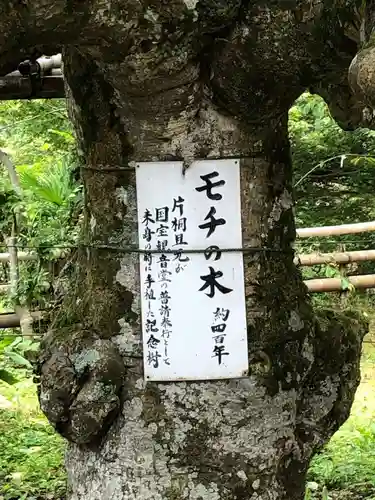 モチの木
約四百年
片桐且元が
国宝観音堂の普請奉行として
未身の時に手植し
記念樹